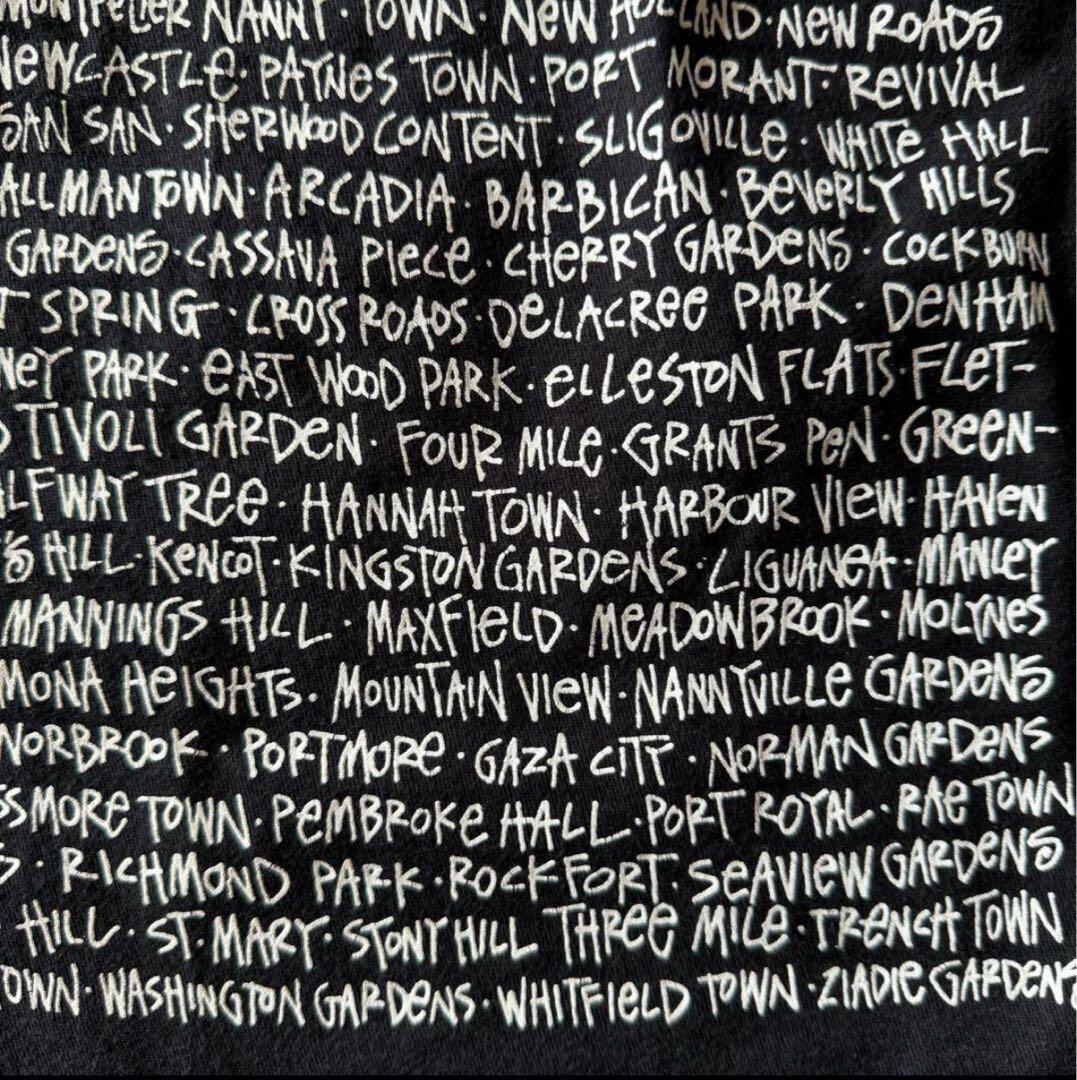 MONTPELIER NANNY TOWN · NEW HOLLAND · NEW ROADS
NEWCASTLE · PAYNES TOWN · PORT MORANT · REVIVAL
SAN SAN · SHERWOOD CONTENT · SLIGOVILLE · WHITE HALL
ALLMAN TOWN · ARCADIA · BARBICAN · BEVERLY HILLS
GARDENS · CASSAVA PIECE · CHERRY GARDENS · COCKBURN
T SPRING · CROSS ROADS · DELACREE PARK · DENHAM
NEY PARK · EAST WOOD PARK · ELLESTON FLATS · FLET-
D TIVOLI GARDEN · FOUR MILE · GRANTS PEN · GREEN-
ALFWAY TREE · HANNAH TOWN · HARBOUR VIEW · HAVEN
'S HILL · KENCOT · KINGSTON GARDENS · LIGUANEA · MANLEY
MANNINGS HILL · MAXFIELD · MEADOWBROOK · MOLYNES
MONA HEIGHTS · MOUNTAIN VIEW · NANNYVILLE GARDENS
NORBROOK · PORTMORE · GAZA CITY · NORMAN GARDENS
SSMORE TOWN · PEMBROKE HALL · PORT ROYAL · RAE TOWN
S · RICHMOND PARK · ROCKFORT · SEAVIEW GARDENS
HILL · ST. MARY · STONY HILL THREE MILE · TRENCH TOWN
TOWN · WASHINGTON GARDENS · WHITFIELD TOWN · ZIADIE GARDENS